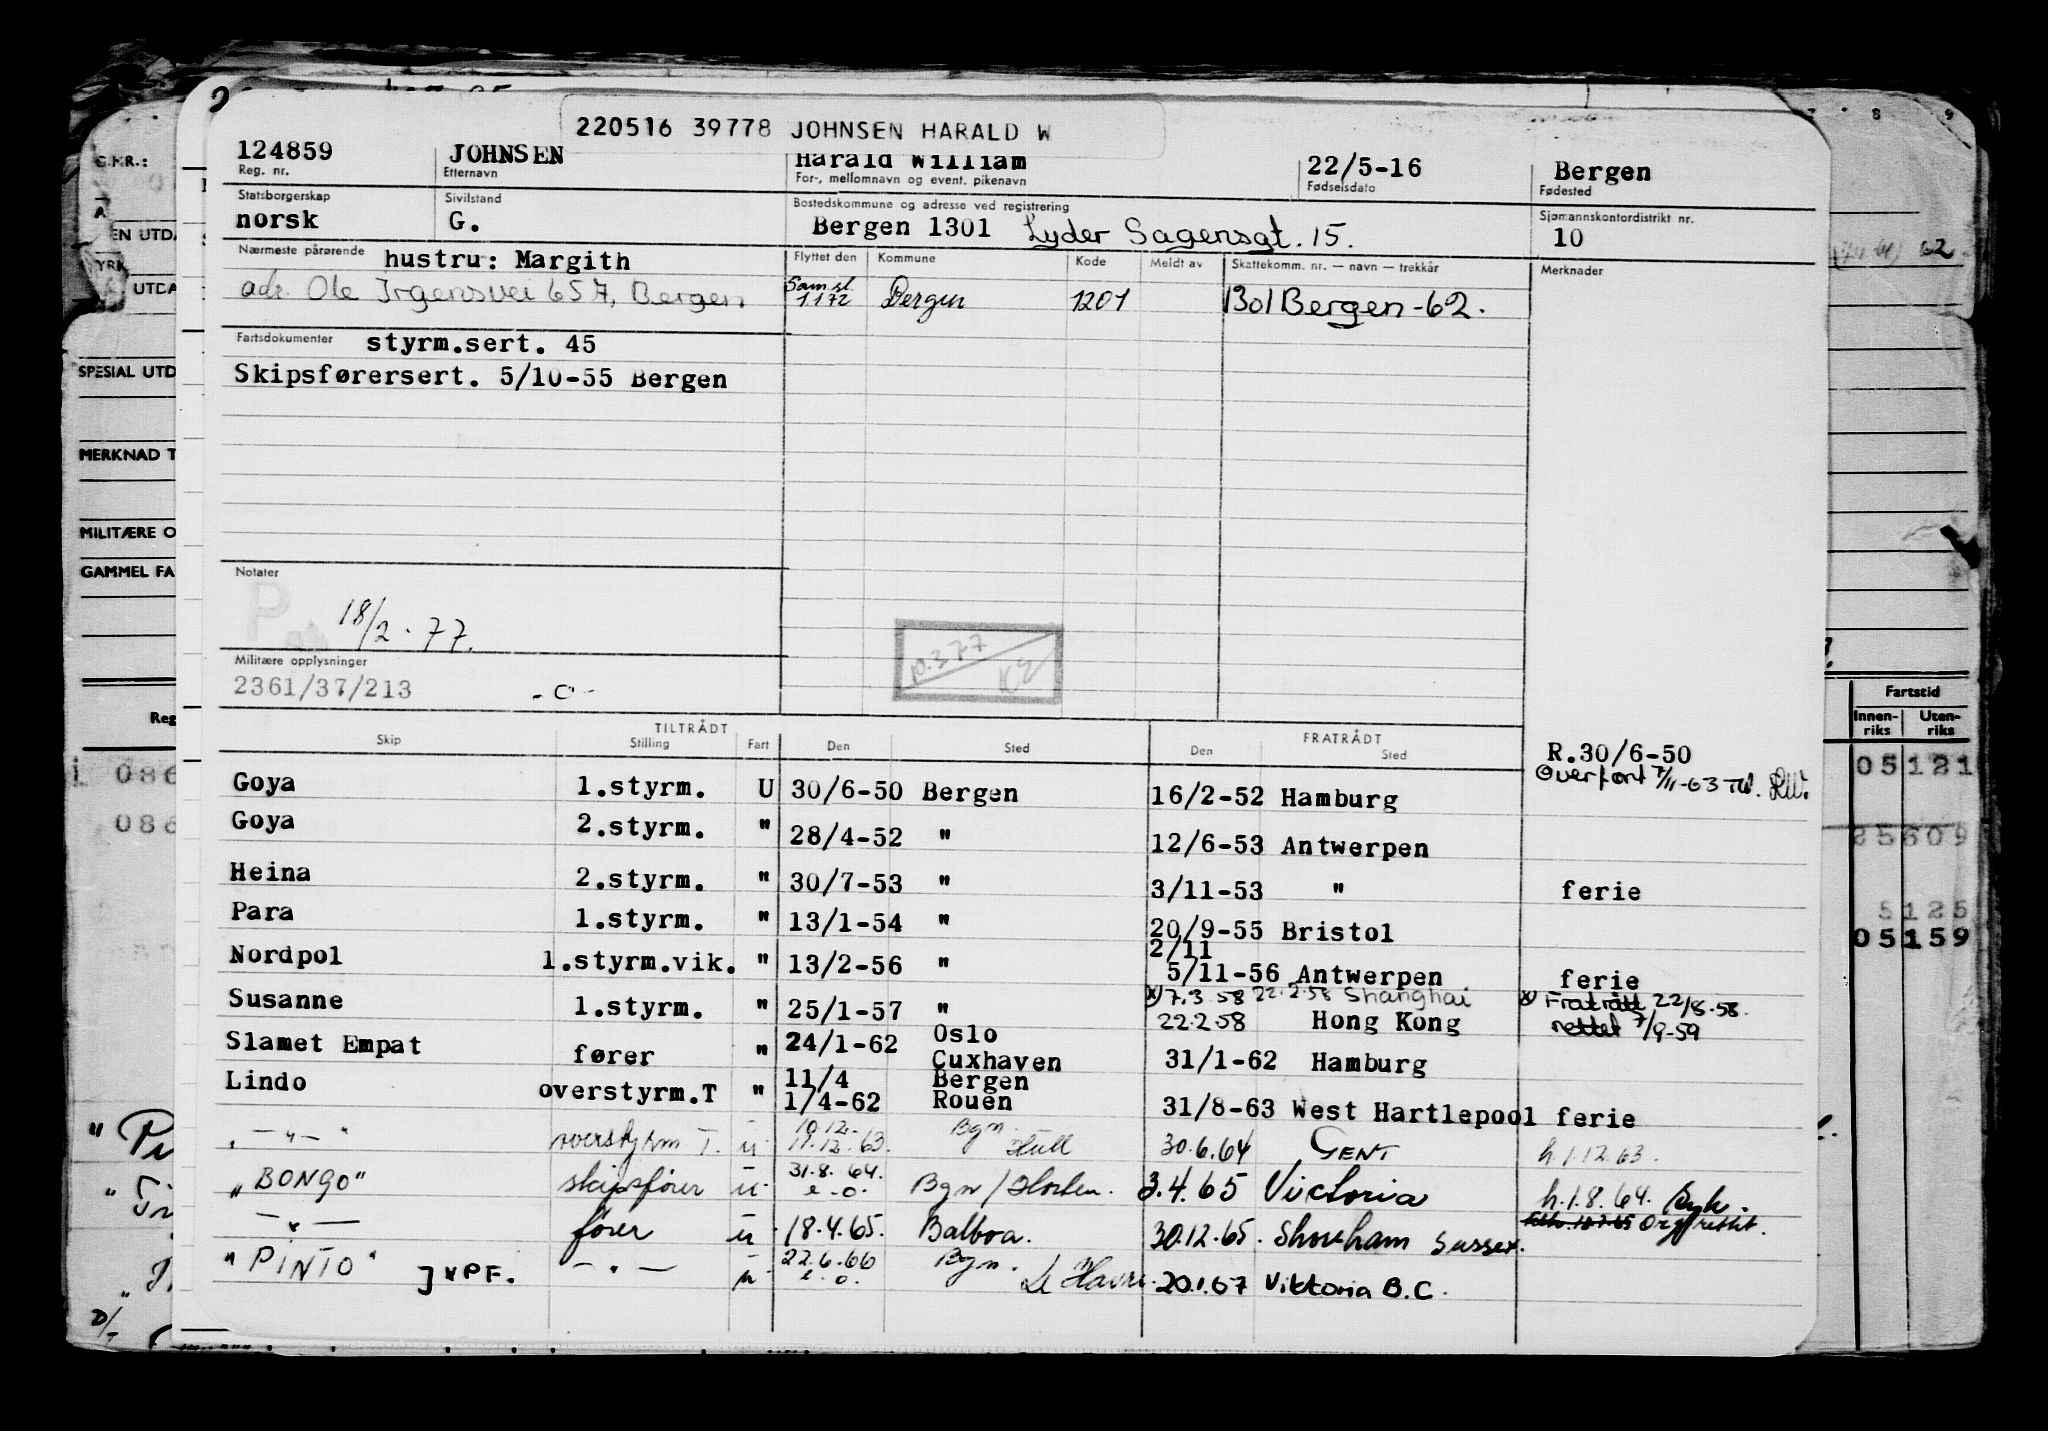 220516 39778 JOHNSEN HARALD W
124859 JOHNSEN Harald William 22/5-16 Bergen
Reg. nr. Etternavn For-, mellomnavn og event. pikenavn Fødselsdato Fødested
Statsborgerskap Sivilstand Bostedskommune og adresse ved registrering Sjømannskontordistrikt nr.
norsk G. Bergen 1301 Lyder Sagensgt. 15. 10
Nærmeste pårørende hustru: Margith Flyttet den Kommune Kode Meldt av Skattekomm. nr. — navn — trekkår Merknader
adr. Ole Irgensvei 65 A, Bergen Sam st 1172 Bergen 1201 1301 Bergen -62.
Fartsdokumenter styrm.sert. 45
Skipsførersert. 5/10-55 Bergen
Notater
P
18/2 . 77.
Militære opplysninger
2361/37/213
TILTRÅDT FRATRÅDT
Skip Stilling Fart Den Sted Den Sted
R.30/6-50
Overført 7/11-63
Goya 1.styrm. U 30/6-50 Bergen 16/2-52 Hamburg
Goya 2.styrm. " 28/4-52 " 12/6-53 Antwerpen
Heina 2.styrm. " 30/7-53 " 3/11-53 " ferie
Para 1.styrm. " 13/1-54 " 20/9-55 Bristol
Nordpol 1.styrm.vik. " 13/2-56 " 2/11 5/11-56 Antwerpen ferie
x) 7.3 58 22.2.58 Shanghai x) Fratrått 22/8-58.
Susanne 1.styrm. " 25/1-57 " 22.2 58 Hong Kong rettet 7/9-59
Slamet Empat fører " 24/1-62 Oslo Cuxhaven 31/1-62 Hamburg
Lindo overstyrm.T " 11/4 Bergen
1/4-62 Rouen 31/8-63 West Hartlepool ferie
" — " — " overstyrm T. u 10.12. Bgn
11.12.63. Hull 30.6.64 GENT h.1.12.63.
„BONGO" skipsfører u 31.8.64. e.o. Bgn / Horten. 3.4.65 Victoria h.1.8.64.
— " — fører u 18.4.65. Balboa. 30.12.65. Shoreham Sussex.
"PINTO" ] x PF. — " — u 22.6.66 e.o. Bgn. Le Havre. 20.1.67 Viktoria B.C.
SPESIAL UTD
MERKNAD T
MILITÆRE O
GAMMEL FA
Reg
UTDA
086
086
8 9
62
Fartstid
Innen-riks Uten-riks
05121
25609
5125
05159